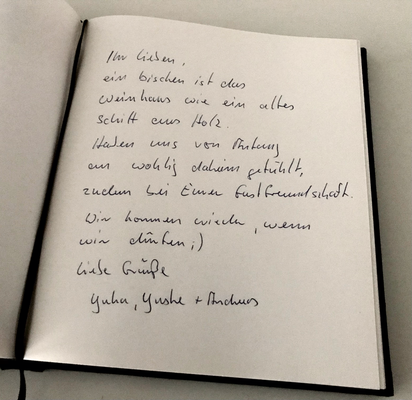 Ihr Lieben,
ein bischen ist das
Weinhaus wie ein altes
Schiff aus Holz.
Haben uns von Anfang
an wohlig daheim gefühlt,
zudem bei Eurer Gastfreundschaft.
Wir kommen wieder, wenn
wir dürfen ;)
Liebe Grüße
+ Andreas